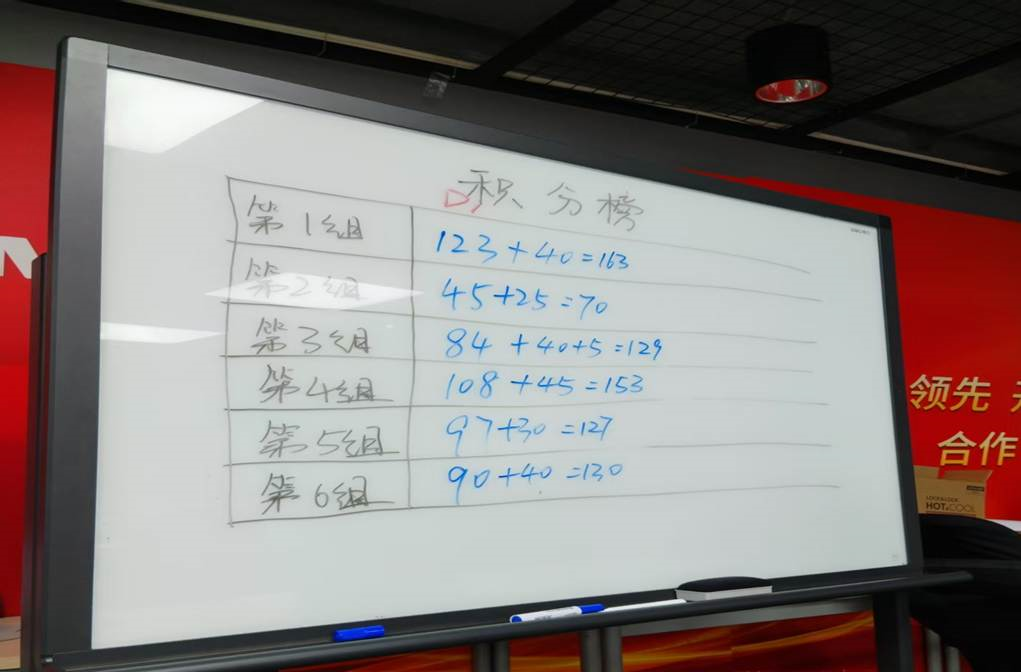 积分榜
第1组 123+40=163
第2组 45+25=70
第3组 84+40+5=129
第4组 108+45=153
第5组 97+30=127
第6组 90+40=130
领先
合作
LOCK&LOCK
HOT&COOL